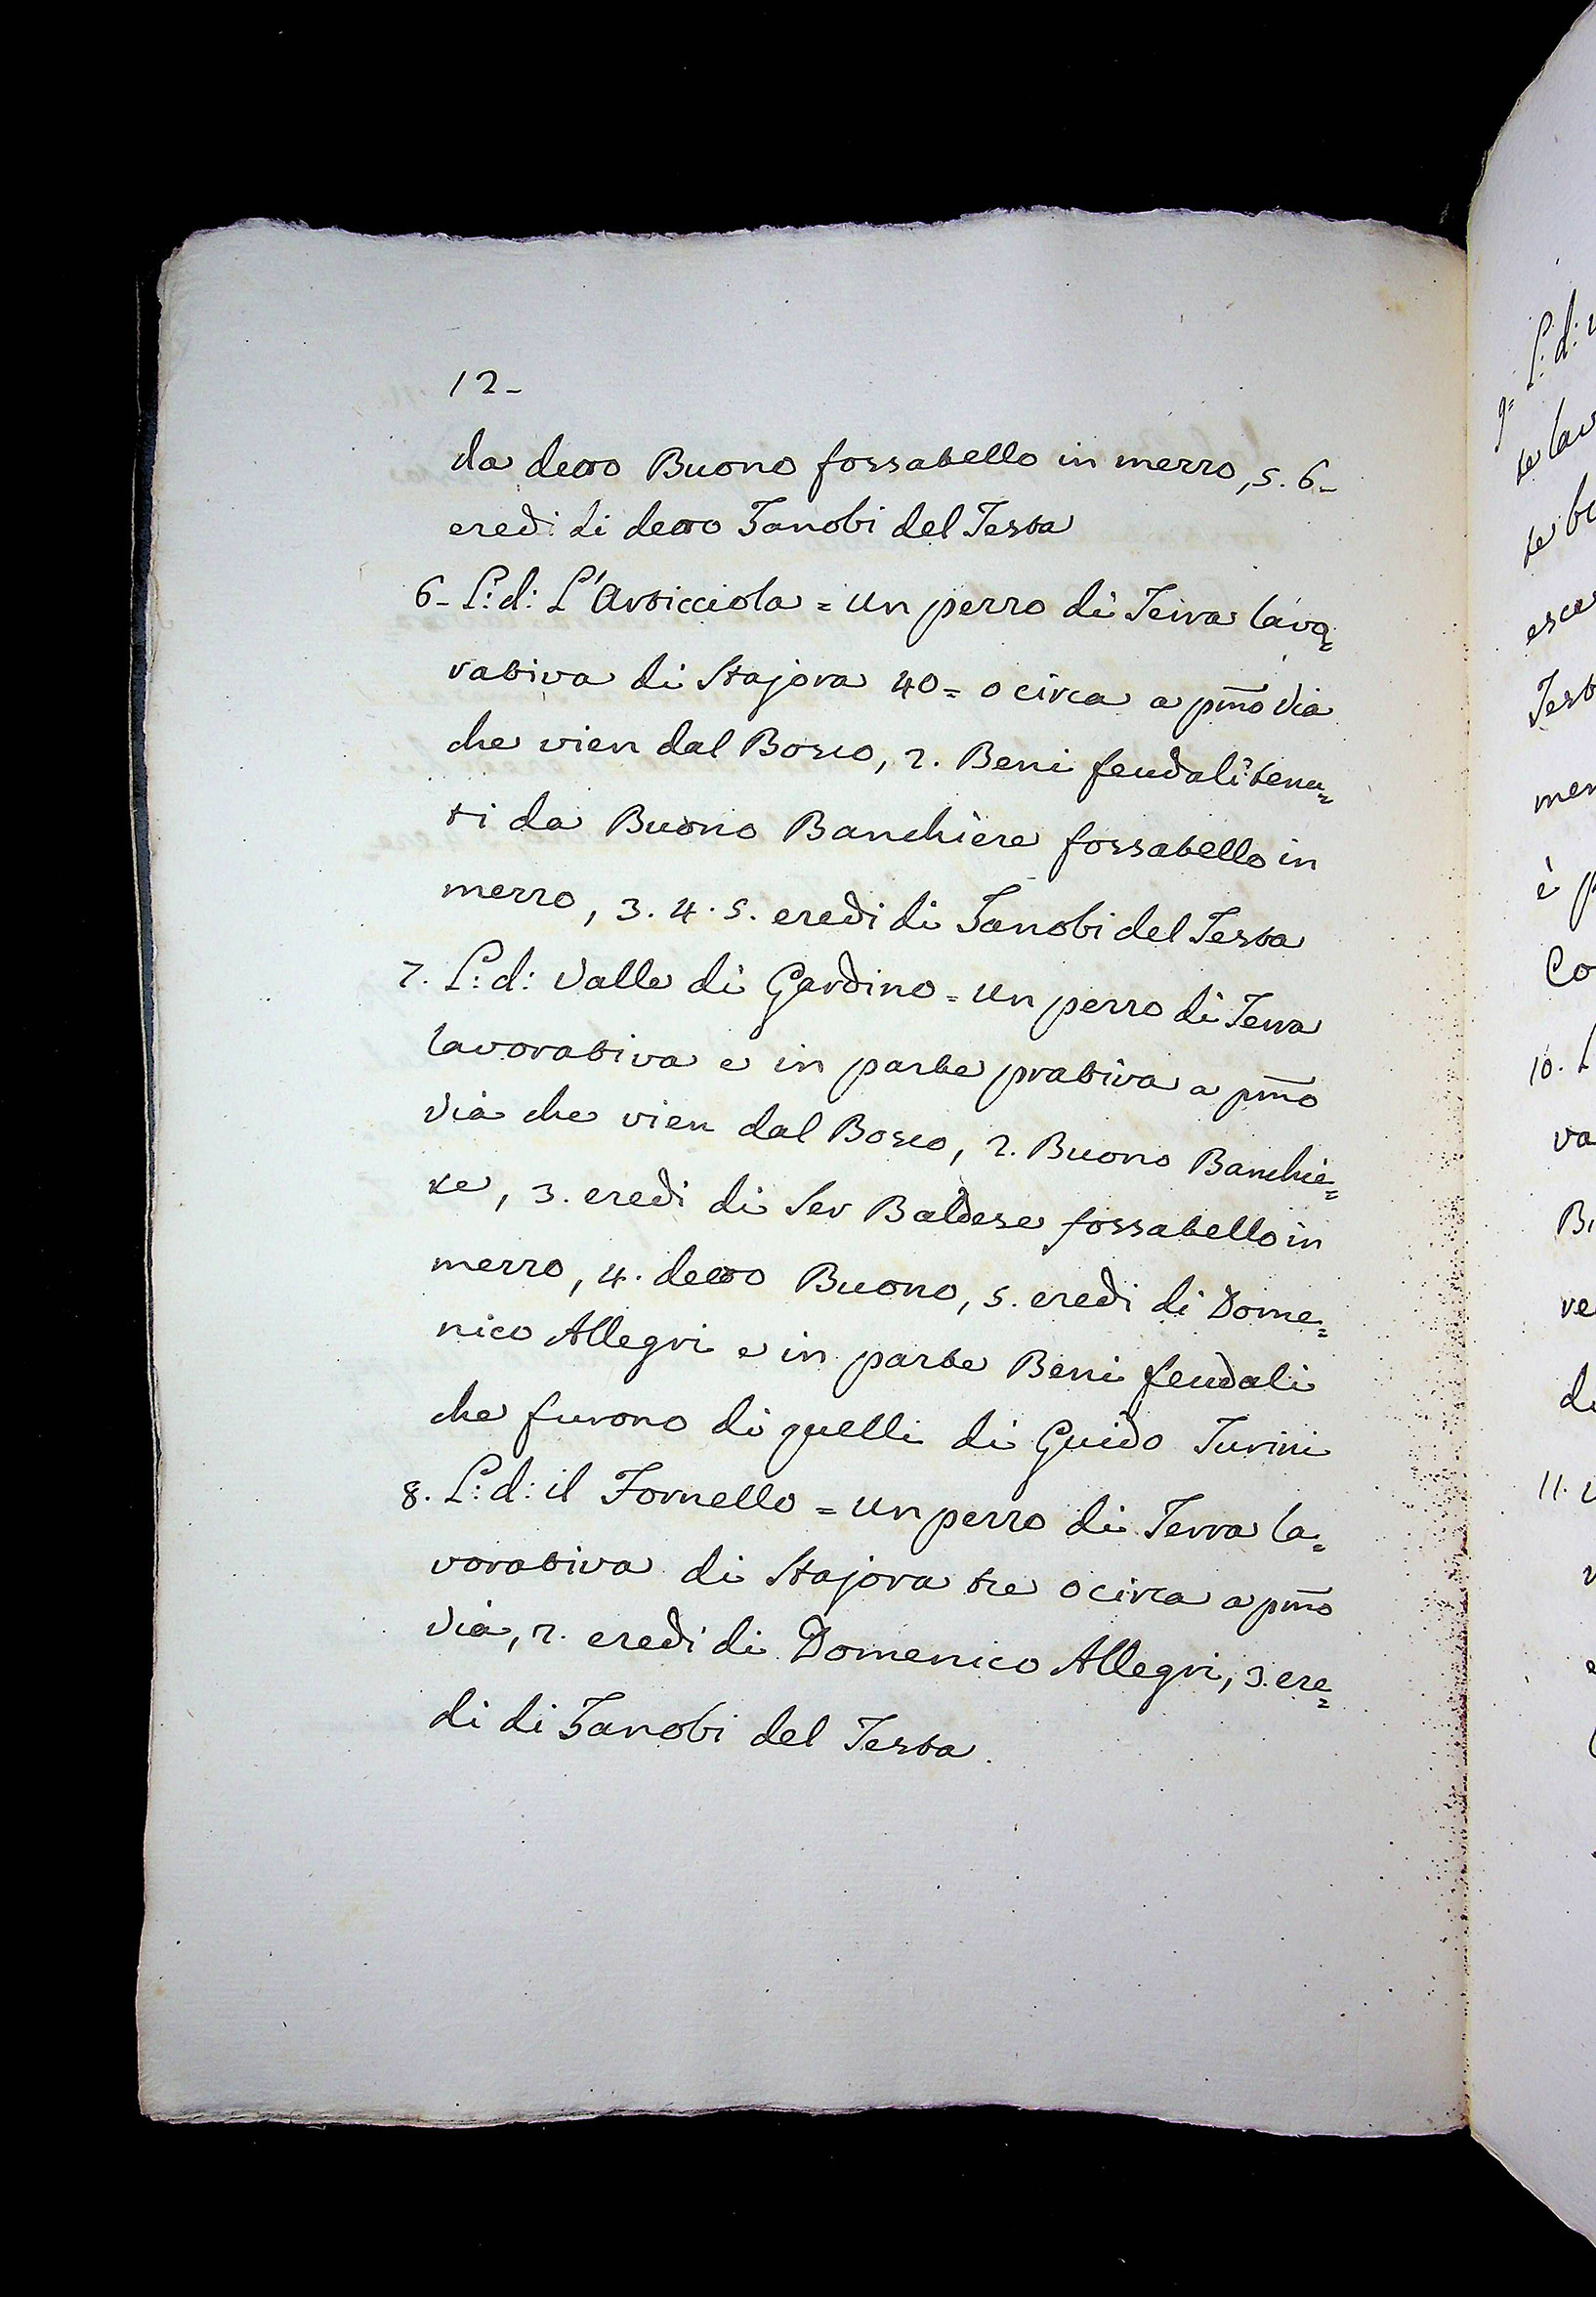 12-
da detto Buono fossatello in mezzo, 5. 6-
eredi di detto Zanobi del Testa
6- L: d: L'Arsicciola = un pezzo di Terra lavo=
rativa di Stajora 40= o circa a pmo via
che vien dal Bosco, 2. Beni feudali tenu=
ti da Buono Banchiere fossatello in
mezzo, 3. 4. 5. eredi di Zanobi del Testa
7. L: d: Valle di Gardino = un pezzo di Terra
lavorativa e in parte prativa a pmo
via che vien dal Bosco, 2. Buono Banchie=
re, 3. eredi di Ser Baldese fossatello in
mezzo, 4. detto Buono, 5. eredi di Dome=
nico Allegri e in parte Beni feudali
che furono di quelli di Guido Turini
8. L: d: il Fornello = un pezzo di Terra la=
vorativa di Stajora tre o circa a pmo
via, 2. eredi di Domenico Allegri, 3. ere=
di di Zanobi del Testa.
9= L: d:
te lav
te
Test
è p
Co
10. L
va
B
ve
11.